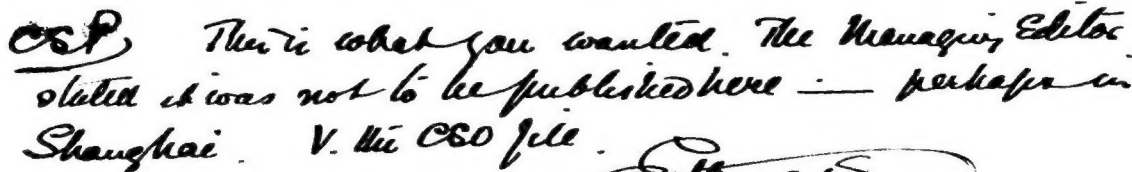 CSP) This is what you wanted. The Managing Editor
stated it was not to be published here — perhaps in
Shanghai. V. this CSO file.